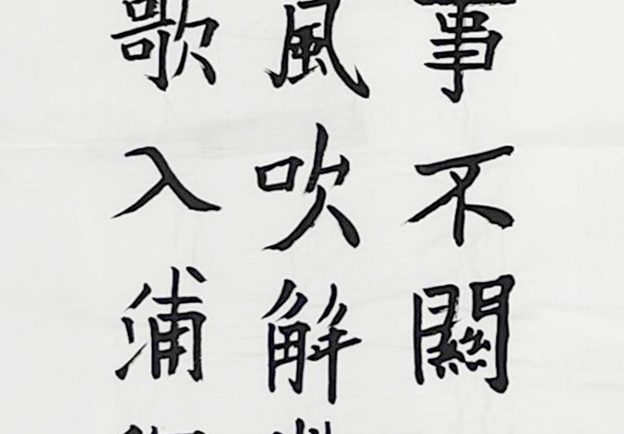 事不關
風吹解
歌入浦